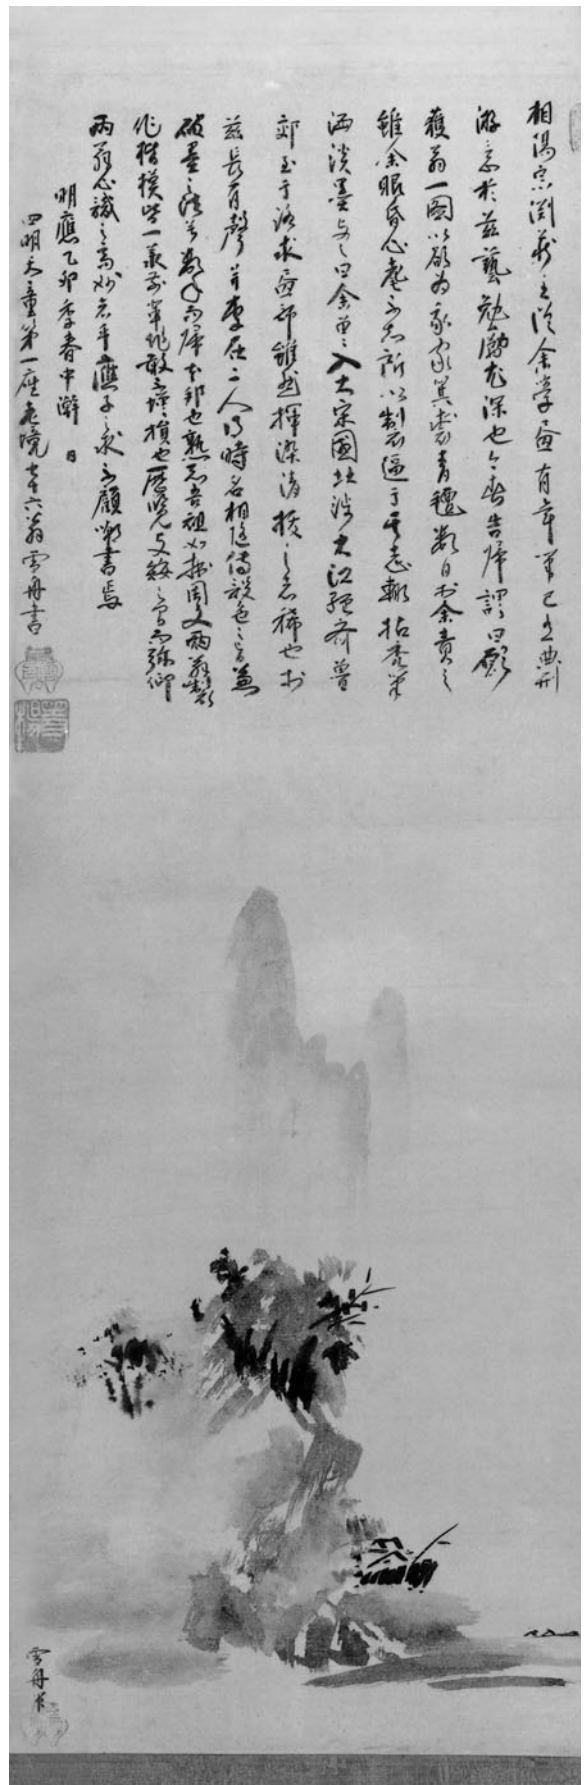 相陽宗淵藏主從余學畫有年筆已有典刑
游意於茲藝勉勵尤深也今春告歸謂曰願
獲翁一圖以願為我家箕裘青氈數日於余責之
雖余眼昏心耄不知所以製逼于其志輙拈禿筆
洒淡墨与之曰余曽入大宋國北涉大江経齊魯
郊至于洛求畫師雖然揮染清拔之者稀也於
茲長有聲并李在二人得時名相随傳設色之旨兼
破墨之法兮數年而歸本邦也熟知吾祖如拙周文兩翁製
作楷模皆一承前輩作敢不增損也歷覽支倭之間而弥仰
兩翁心識之高妙者乎應子之求不顧嘲書焉
明應乙卯季春中澣日
四明天童第一座老境七十六翁雪舟書
等楊
雪舟筆